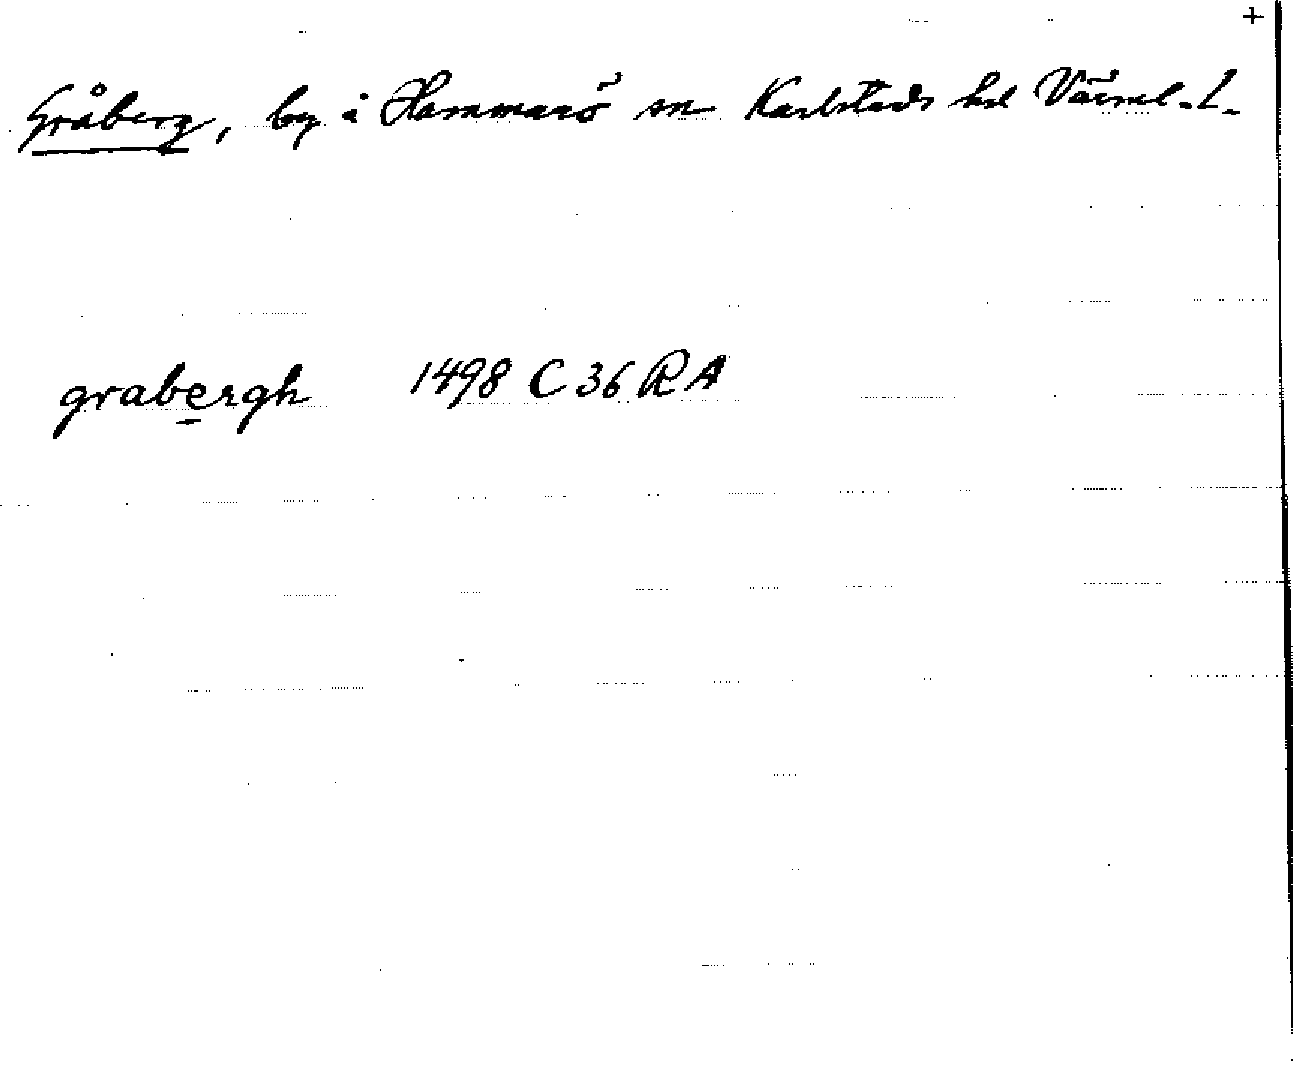 +
Gråberg, by i Hammarö sn Karlstads hd Värml. l.
grabergh 1498 C 36 RA